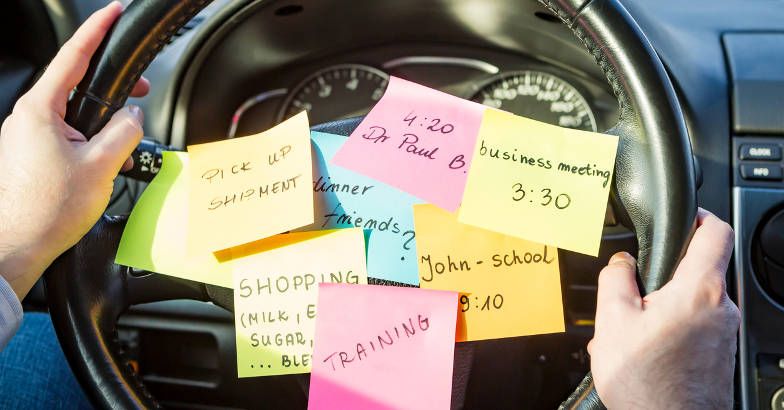 4:20
Dr Paul B.
business meeting
3:30
PICK UP
SHIPMENT
dinner
friends?
John - school
9:10
SHOPPING
(MILK, E
SUGAR,
...
TRAINING
CLOCK
INFO